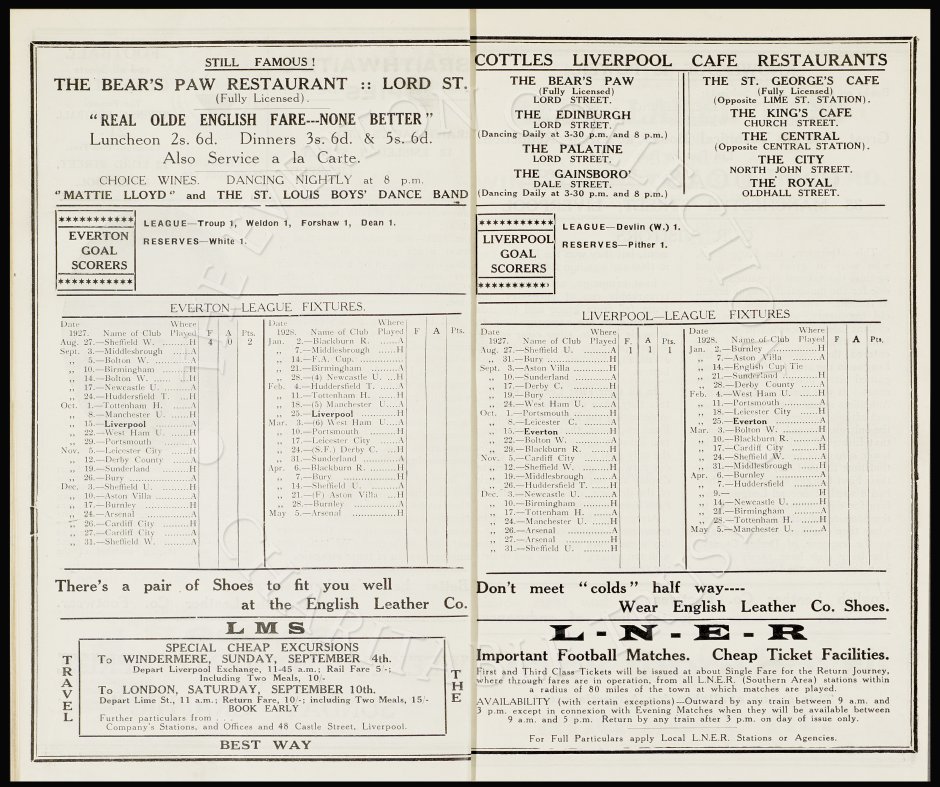 STILL FAMOUS!
THE BEAR'S PAW RESTAURANT :: LORD ST.
(Fully Licensed).
"REAL OLDE ENGLISH FARE---NONE BETTER"
Luncheon 2s. 6d. Dinners 3s. 6d. & 5s. 6d.
Also Service a la Carte.
CHOICE WINES. DANCING NIGHTLY at 8 p.m.
"MATTIE LLOYD" and THE ST. LOUIS BOYS' DANCE BAND
EVERTON
GOAL
SCORERS
LEAGUE—Troup 1, Weldon 1, Forshaw 1, Dean 1.
RESERVES—White 1.
EVERTON—LEAGUE FIXTURES.
Date Where
1927. Name of Club Played. F A Pts.
Aug. 27.—Sheffield W. ......H 4 0 2
Sept. 3.—Middlesbrough ......A
„ 5.—Bolton W. ......A
„ 10.—Birmingham ......H
„ 14.—Bolton W. ......H
„ 17.—Newcastle U. ......A
„ 24.—Huddersfield T. ...H
Oct. 1.—Tottenham H. ......A
„ 8.—Manchester U. ......H
„ 15.—Liverpool ......A
„ 22.—West Ham U. ......H
„ 29.—Portsmouth ......A
Nov. 5.—Leicester City ......H
„ 12.—Derby County ......A
„ 19.—Sunderland ......H
„ 26.—Bury ......A
Dec. 3.—Sheffield U. ......H
„ 10.—Aston Villa ......A
„ 17.—Burnley ......H
„ 24.—Arsenal ......A
„ 26.—Cardiff City ......H
„ 27.—Cardiff City ......A
„ 31.—Sheffield W. ......A
Date Where
1928. Name of Club Played F A Pts.
Jan. 2.—Blackburn R. ......A
„ 7.—Middlesbrough ......H
„ 14.—F.A. Cup.
„ 21.—Birmingham ......A
„ 28.—(4) Newcastle U. ...H
Feb. 4.—Huddersfield T. ......A
„ 11.—Tottenham H. ......H
„ 18.—(5) Manchester U. ...A
„ 25.—Liverpool ......H
Mar. 3.—(6) West Ham U. ...A
„ 10.—Portsmouth ......H
„ 17.—Leicester City ......A
„ 24.—(S.F.) Derby C. ...H
„ 31.—Sunderland ......A
Apr. 6.—Blackburn R. ......H
„ 7.—Bury ......H
„ 14.—Sheffield U. ......A
„ 21.—(F) Aston Villa ...H
„ 28.—Burnley ......A
May 5.—Arsenal ......H
There's a pair of Shoes to fit you well
at the English Leather Co.
LMS
TRAVEL
SPECIAL CHEAP EXCURSIONS
To WINDERMERE, SUNDAY, SEPTEMBER 4th.
Depart Liverpool Exchange, 11-45 a.m.; Rail Fare 5/-;
Including Two Meals, 10/-
To LONDON, SATURDAY, SEPTEMBER 10th.
Depart Lime St., 11 a.m.; Return Fare, 10/-; including Two Meals, 15/-
BOOK EARLY
Further particulars from . . .
Company's Stations, and Offices and 48 Castle Street, Liverpool.
THE
BEST WAY
COTTLES LIVERPOOL CAFE RESTAURANTS
THE BEAR'S PAW
(Fully Licensed)
LORD STREET.
THE EDINBURGH
LORD STREET.
(Dancing Daily at 3-30 p.m. and 8 p.m.)
THE PALATINE
LORD STREET.
THE GAINSBORO'
DALE STREET.
(Dancing Daily at 3-30 p.m. and 8 p.m.)
THE ST. GEORGE'S CAFE
(Fully Licensed)
(Opposite LIME ST. STATION).
THE KING'S CAFE
CHURCH STREET.
THE CENTRAL
(Opposite CENTRAL STATION).
THE CITY
NORTH JOHN STREET.
THE ROYAL
OLDHALL STREET.
LIVERPOOL
GOAL
SCORERS
LEAGUE—Devlin (W.) 1.
RESERVES—Pither 1.
LIVERPOOL—LEAGUE FIXTURES
Date Where
1927. Name of Club Played F. A. Pts.
Aug. 27.—Sheffield U. ......A 1 1 1
„ 31.—Bury ......H
Sept. 3.—Aston Villa ......H
„ 10.—Sunderland ......A
„ 17.—Derby C. ......H
„ 19.—Bury ......A
„ 24.—West Ham U. ......A
Oct. 1.—Portsmouth ......H
„ 8.—Leicester C. ......A
„ 15.—Everton ......H
„ 22.—Bolton W. ......A
„ 29.—Blackburn R. ......H
Nov. 5.—Cardiff City ......A
„ 12.—Sheffield W. ......H
„ 19.—Middlesbrough ......A
„ 26.—Huddersfield T. ......H
Dec. 3.—Newcastle U. ......A
„ 10.—Birmingham ......H
„ 17.—Tottenham H. ......A
„ 24.—Manchester U. ......H
„ 26.—Arsenal ......A
„ 27.—Arsenal ......H
„ 31.—Sheffield U. ......H
Date Where
1928. Name of Club Played F A Pts.
Jan. 2.—Burnley ......H
„ 7.—Aston Villa ......A
„ 14.—English Cup Tie
„ 21.—Sunderland ......H
„ 28.—Derby County ......A
Feb. 4.—West Ham U. ......H
„ 11.—Portsmouth ......A
„ 18.—Leicester City ......H
„ 25.—Everton ......A
Mar. 3.—Bolton W. ......H
„ 10.—Blackburn R. ......A
„ 17.—Cardiff City ......H
„ 24.—Sheffield W. ......A
„ 31.—Middlesbrough ......H
Apr. 6.—Burnley ......A
„ 7.—Huddersfield ......A
„ 9.— H
„ 14.—Newcastle U. ......H
„ 21.—Birmingham ......A
„ 28.—Tottenham H. ......H
May 5.—Manchester U. ......A
Don't meet "colds" half way----
Wear English Leather Co. Shoes.
L-N-E-R
Important Football Matches. Cheap Ticket Facilities.
First and Third Class Tickets will be issued at about Single Fare for the Return Journey,
where through fares are in operation, from all L.N.E.R. (Southern Area) stations within
a radius of 80 miles of the town at which matches are played.
AVAILABILITY (with certain exceptions)—Outward by any train between 9 a.m. and
3 p.m. except in connexion with Evening Matches when they will be available between
9 a.m. and 5 p.m. Return by any train after 3 p.m. on day of issue only.
For Full Particulars apply Local L.N.E.R. Stations or Agencies.